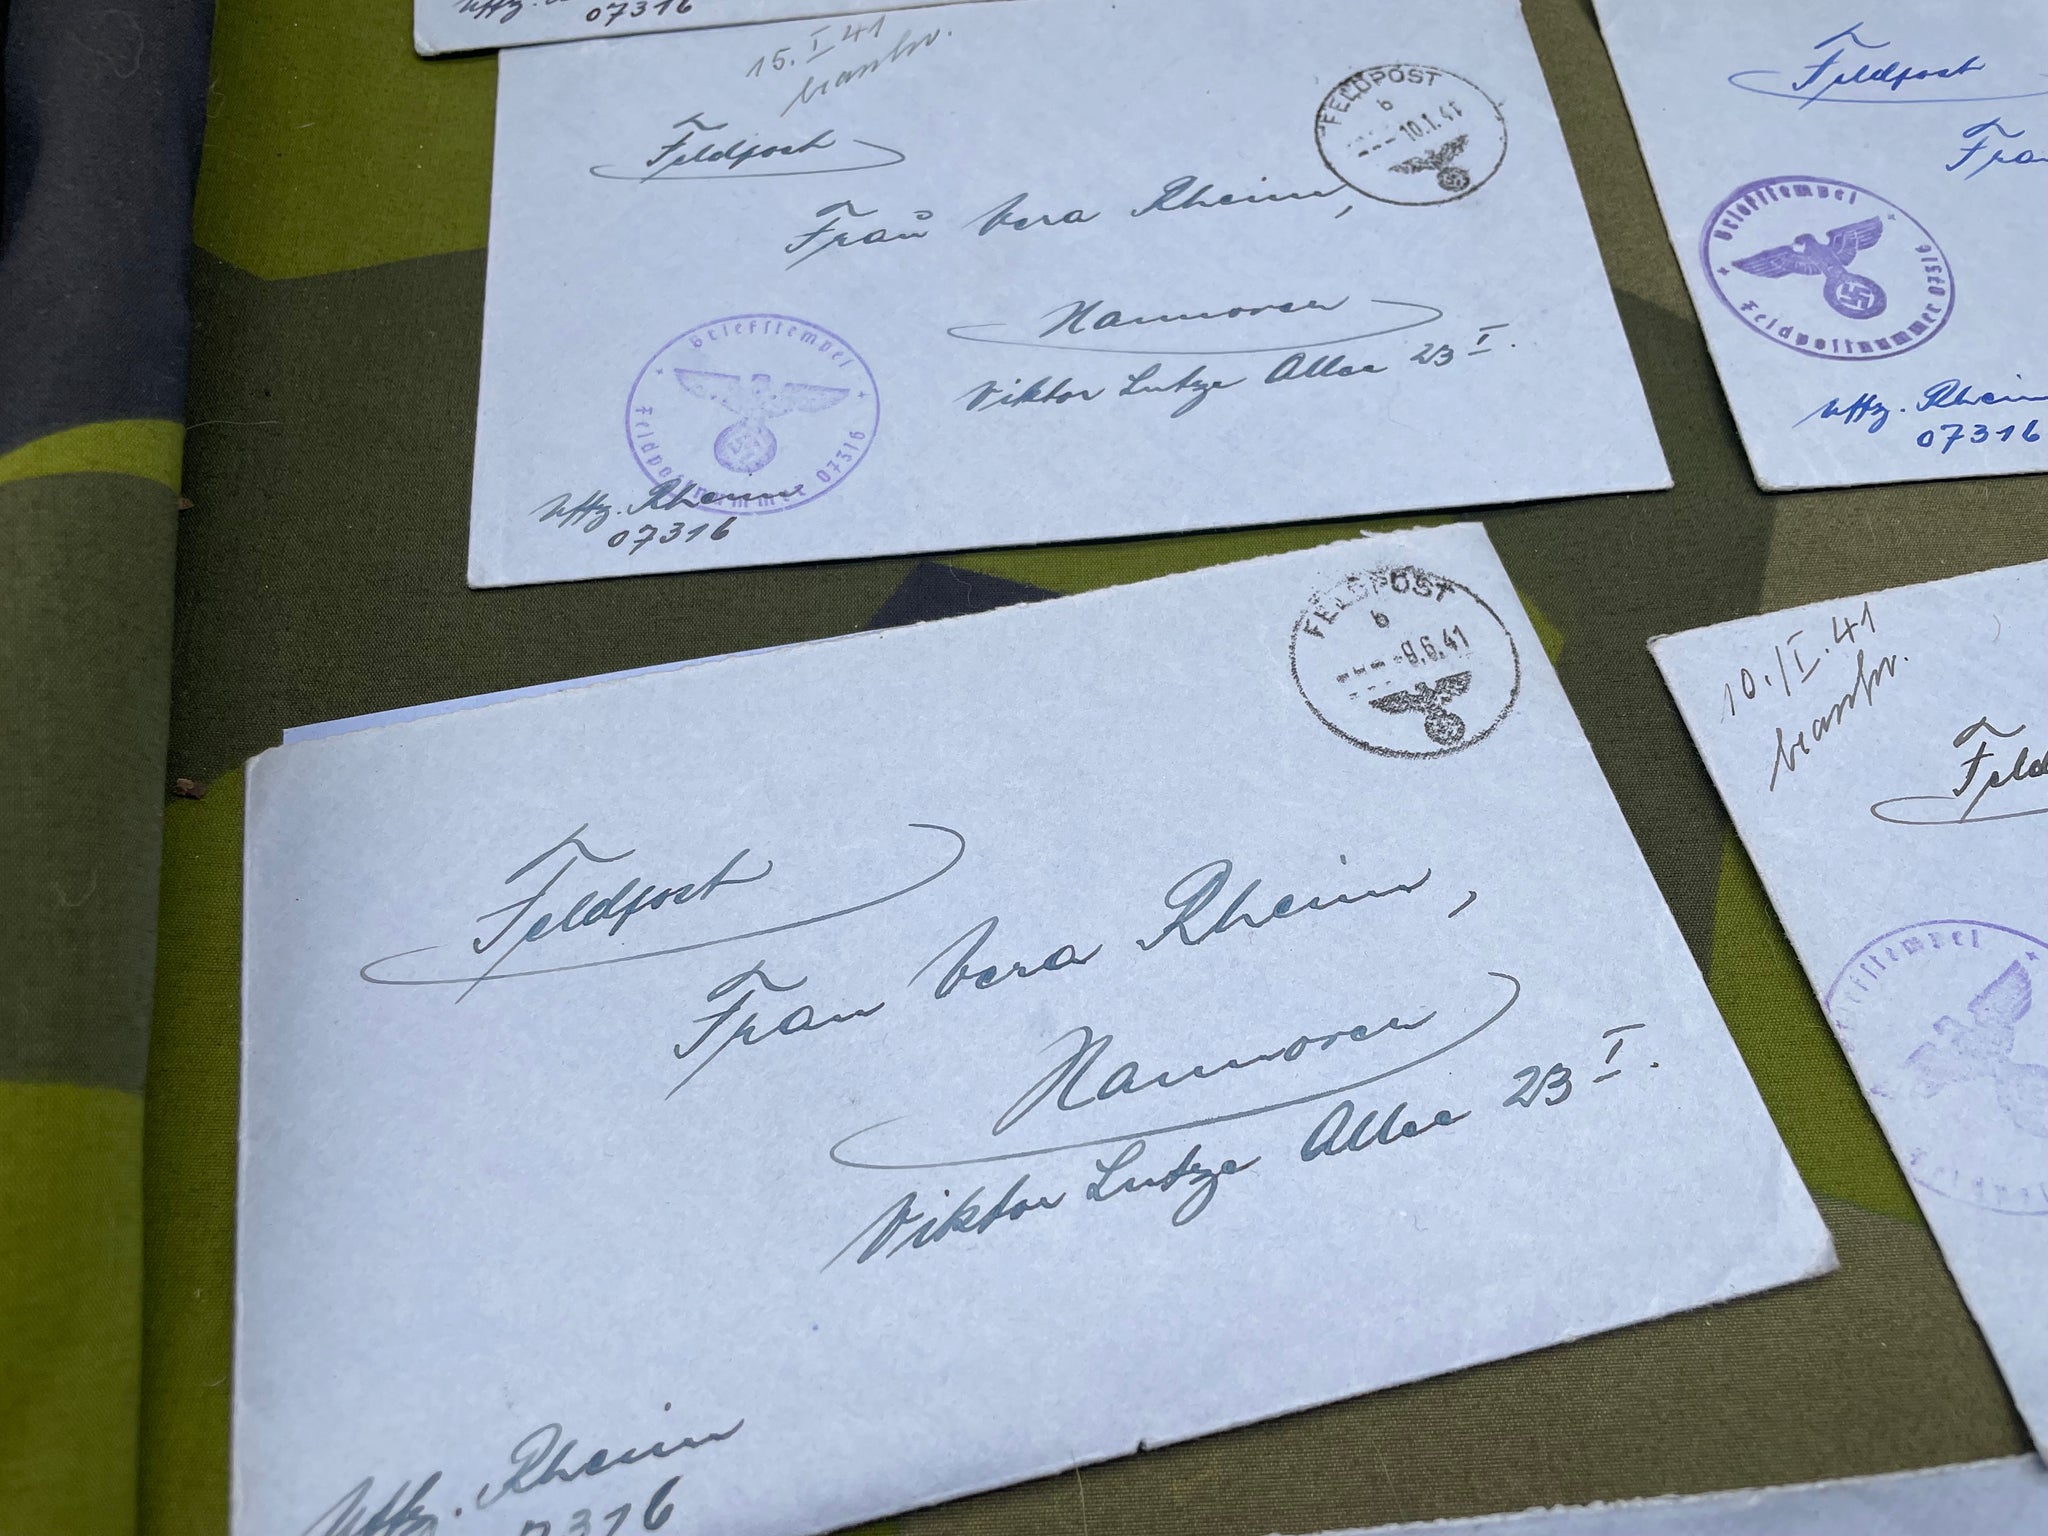 07316
15. I 41
beantw.
Feldpost
FELDPOST
b
10.1.41
Frau Vera Rheim,
Hannover
Viktor Lutze Allee 23 I.
Briefstempel
Feldpostnummer 07316
Uffz. Rheim
07316
Feldpost
Frau
Briefstempel
Feldpostnummer 07316
Uffz. Rheim
07316
FELDPOST
b
-9.6.41
Feldpost
Frau Vera Rheim,
Hannover
Viktor Lutze Allee 23 I.
Uffz. Rheim
07316
10./I. 41
beantw.
Feld
Briefstempel